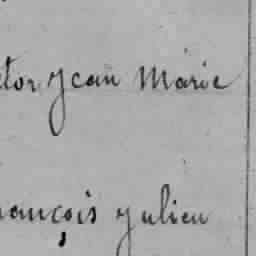 tor Jean Marie
rançois Julien